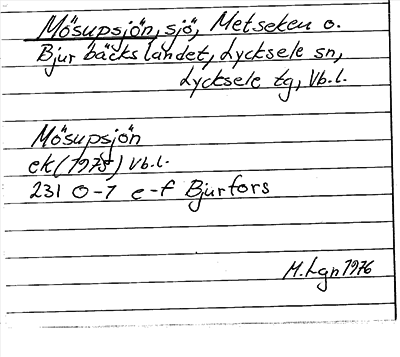 Mösupsjön, sjö, Metseken o.
Bjurbäckslandet, Lycksele sn,
Lycksele tg, Vb.l.
Mösupsjön
ek (1975) Vb.l.
231 0-7 e-f Bjurfors
M. Lgn 1976